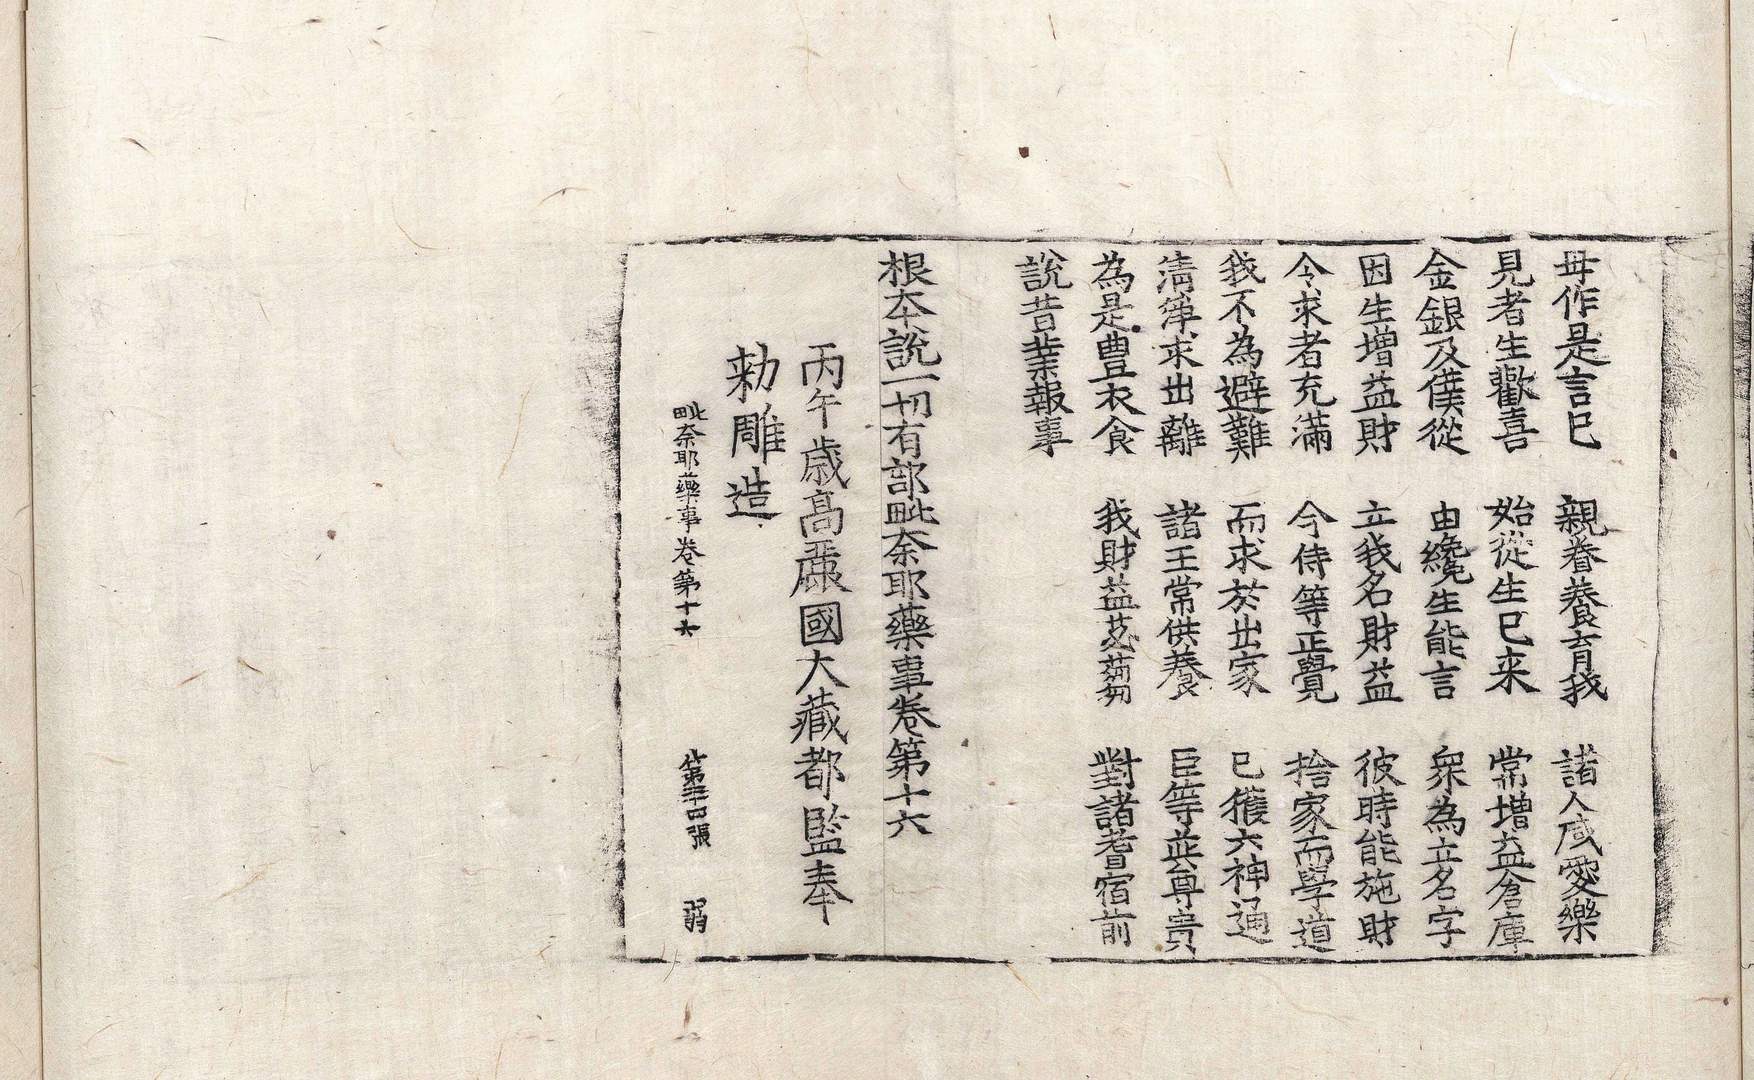 毋作是言已 親眷養育我 諸人咸愛樂
見者生歡喜 始從生已来 常增益倉庫
金銀及僕從 由纔生能言 衆為立名字
因生增益財 立我名財益 彼時能施財
令求者充滿 今侍等正覺 捨家而學道
我不為避難 而求於出家 已獲六神通
清淨求出離 諸王常供養 臣等並尊貴
為是豊衣食 我財益苾蒭 對諸耆宿前
說昔業報事
根本說一切有部毗奈耶藥事卷第十六
丙午歳高麗國大藏都監奉
勅雕造
毗奈耶藥事卷第十六 第二十四張 弱